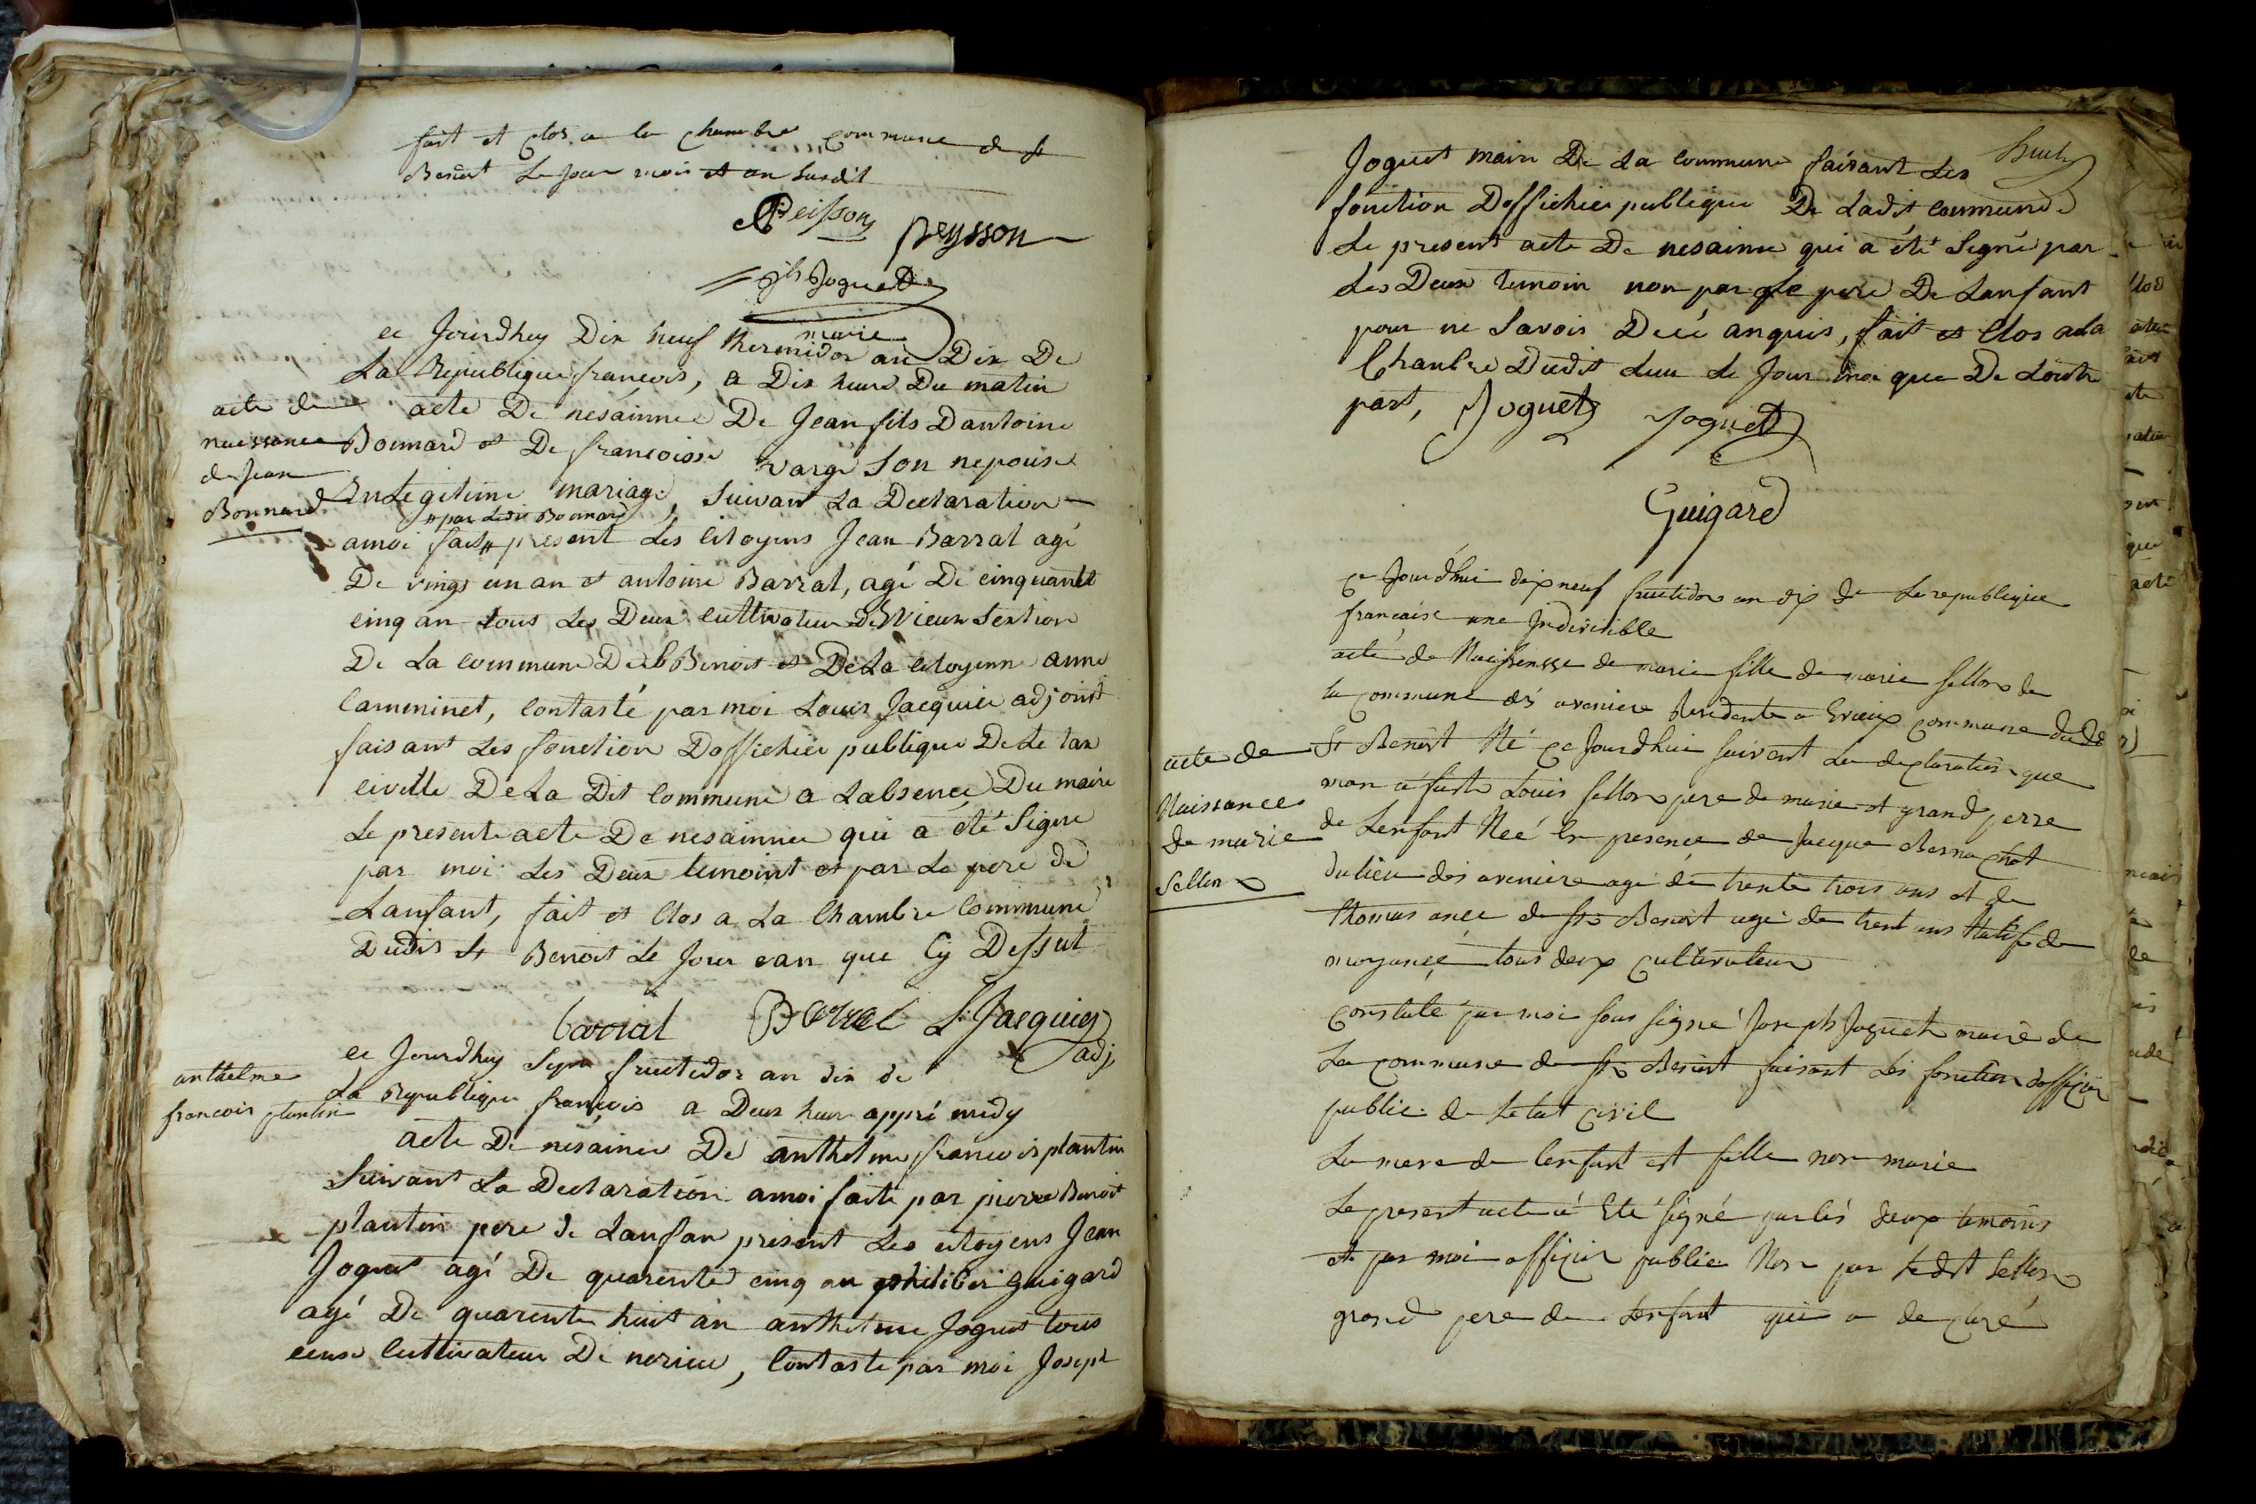 fait et clos a la chambre commune de st
Benoit Le jour mois et an susdit
Peisson
peysson
jh Joguet
maire
ce Jourdhuy Dix neuf thermidor an Dix De
La Republique françois, a Dix heure Du matin
acte De nesainnce De Jean fils Dantoine
Bonnard et De francoisse vargé Son nepouse
En Legitime mariage, suivant La Declaration
par Ledit Bonnard
amoi fait present Les citoyens Jean Barral agé
De vingt un an et antoine Barral, agé De cinquante
cinq an tous Les Deux cultivateur D'Evieux section
De La commune De st Benoit et De La citoyenne anne
Camminet, Contasté par moi Louis Jacquier adjoint
faisant Les fonction Doffichier publique De Le tax
civille De La Dit commune a Labsence Du maire
Le presente acte De nesainnce qui a été Signe
par moi Les Deux temoint et par Le pere De
Lanfant, fait et Clos a La Chambre Commune
Dudit st Benoit Le Jour ean que Cy Dessut
acte de
naissance
de Jean
Bonnard
barral Barral L. Jacquier
adj.
anthelme
francois plantin
ce Jourdhuy Sept fructidor an dix de
La Republique françois a Deux heure appré midy
acte De nesaince De anthelme francois plantin
Suivant La Declaration amoi faite par pierre Benoit
plantin pere De Lanfan present Les citoyens Jean
Joguet agé De quarente cinq an philiber guigard
agé De quarente huit an anthelme Joguet tous
ceux Cultivateur De nerieu, Contasté par moi Joseph
Joguet maire De La commune faisant Les
fonction Doffichier publique De Ladit commune
Le present acte De nesainne qui a été Signé par
Les Deux temoin non par Le pere De Lanfant
pour ne Savoir De ce anquis, fait et Clos a La
Chanbre Dudit Lieu Le Jour moi que De Loutre
part, Joguet Joguet
Guigard
ce Jourdhui dix neuf fructidor an dix de La republique
francaise une Indivisible
acte de Naissensse de marie fille de marie sellon de
la commune des aveniere Residente a Evieux commune dudt
St Benoit Né ce Jourdhui suivant La declaration que
man a faite Louis sellon pere de marie et grand perre
de Lenfant Neé En presence de Jacque Bernachot
du lieu des aveniere agé de trente trois ans et de
thomas ancé de St Benoit agé de trent ans Natif de
moyancé tous deux cultivateur
acte de
Naissance
de marie
sellon
constaté par moi sous signé Joseph Joguet maire de
La commune de St Benoit faisant Les fonction d'officier
public de Letat civil
La mere de lenfant est fille non marie
Le present acte a Eté signé par les deux temoins
et par moi officier public Non par Ledit Sellon
grand pere de Lenfant qui a declaré